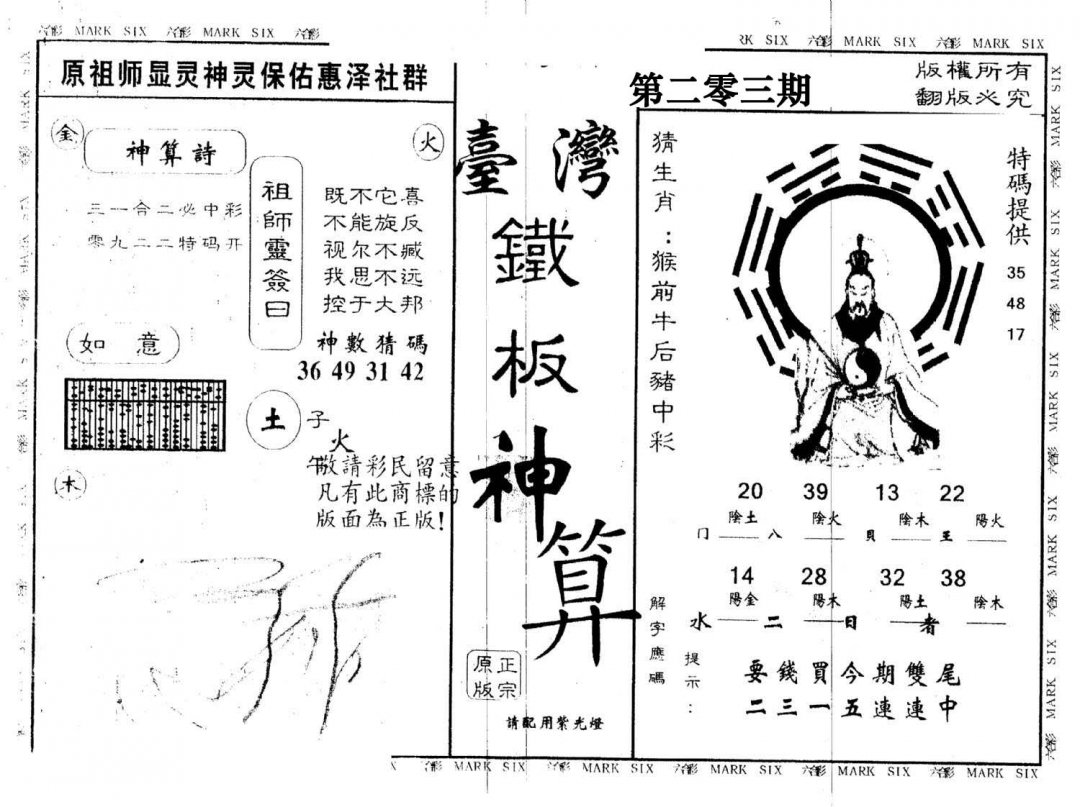 六合彩 MARK SIX 六合彩 MARK SIX 六合彩
RK SIX 六合彩 MARK SIX 六合彩 MARK SIX
原祖师显灵神灵保佑惠泽社群
金
火
神算詩
三一合二必中彩
零九二二特码开
祖師靈簽曰
既不它喜
不能旋反
视尔不臧
我思不远
控于大邦
如意
神數猜碼
36 49 31 42
土
子
火
午
木
敬請彩民留意
凡有此商標的
版面為正版!
臺灣
鐵板神算
正宗
原版
請配用紫光燈
第二零三期
版權所有
翻版必究
猜生肖:猴前牛后豬中彩
特碼提供
35
48
17
20 39 13 22
陰土 陰火 陰木 陽火
门 八 貝 王
14 28 32 38
陽金 陽木 陽土 陰木
水 二 日 者
解字應碼
提示:
要錢買今期雙尾
二三一五連連中
六合彩 MARK SIX 六合彩 MARK SIX 六合彩 MARK SIX 六合彩 MARK SIX 六合彩 MARK SIX